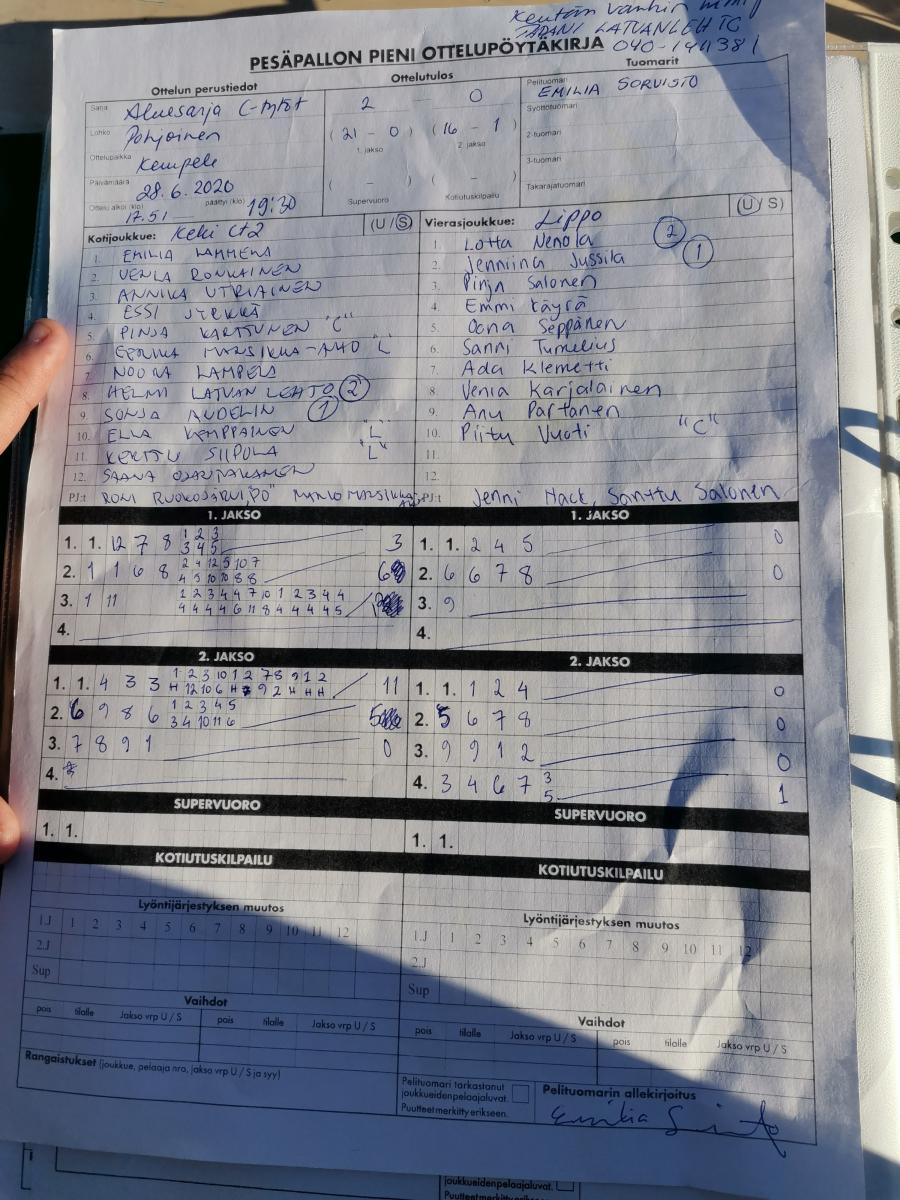 Kentän vanhin
TAPANI LATVANLEHTO
PESÄPALLON PIENI OTTELUPÖYTÄKIRJA 040-144381
Ottelun perustiedot Ottelutulos Tuomarit
Sarja Aluesarja C-tytöt 2 - 0 Pelituomari EMILIA SORVISTO
Lohko Pohjoinen (21 - 0) (16 - 1) Syöttötuomari
1. jakso 2. jakso
Ottelupaikka Kempele 2-tuomari
Päivämäärä 28.6.2020 ( - ) ( - ) 3-tuomari
Ottelu alkoi (klo) 17.51 päättyi (klo) 19:30 Supervuoro Kotiutuskilpailu Takarajatuomari
Kotijoukkue: Keki Ct2 (U / S) Vierasjoukkue: Lippo (U / S)
1. EMILIA LAMMELA 1. Lotta Nenola 2
2. VENLA RONKAINEN 2. Jenniina Jussila 1
3. ANNIKA UTRIAINEN 3. Pinja Salonen
4. ESSI JYRKKÄ 4. Emmi Käyrä
5. PINJA KARTTUNEN "C" 5. Oona Seppänen
6. EERIKA MARSIKKA-AHO L 6. Sanni Tumelius
7. NOORA LAMPELA 7. Ada Klemetti
8. HELMI LATVANLEHTO 2 8. Venla Karjalainen
9. SONJA AUDELIN 1 9. Anu Partanen
10. ELLA KEMPPAINEN "L" 10. Piitu Vuoti "C"
11. KERTTU SIIPOLA "L" 11.
12. SAANA 12.
PJ:t RONI RUOKOJÄRVI "PJ" MARKO MARSIKKA-AHO PJ:t Jenni Hack, Santtu Salonen
1. JAKSO 1. JAKSO
1. 1. 12 7 8 1 2 3 3 1. 1. 2 4 5 0
3 4 5
2. 1 1 6 8 2 4 12 5 10 7 6 2. 6 6 7 8 0
4 5 10 10 8 8
3. 1 11 1 2 3 4 4 7 10 1 2 3 4 4 3. 9
4 4 4 4 6 11 8 4 4 4 4 5
4. 4.
2. JAKSO 2. JAKSO
1. 1. 4 3 3 1 2 3 10 1 2 7 8 9 1 2 11 1. 1. 1 2 4 0
H 12 10 6 H 9 2 H H H
2. 6 9 8 6 1 2 3 4 5 5 2. 5 6 7 8 0
3 4 10 11 6
3. 7 8 9 1 0 3. 9 9 1 2 0
4. 4. 3 4 6 7 3 1
5
SUPERVUORO SUPERVUORO
1. 1. 1. 1.
KOTIUTUSKILPAILU KOTIUTUSKILPAILU
Lyöntijärjestyksen muutos Lyöntijärjestyksen muutos
1.J 1 2 3 4 5 6 7 8 9 10 11 12 1.J 1 2 3 4 5 6 7 8 9 10 11 12
2.J 2.J
Sup Sup
Vaihdot Vaihdot
pois tilalle Jakso vrp U / S pois tilalle Jakso vrp U / S pois tilalle Jakso vrp U / S pois tilalle Jakso vrp U / S
Rangaistukset (joukkue, pelaaja nro, jakso vrp U / S ja syy)
Pelituomari tarkastanut Pelituomarin allekirjoitus
joukkueidenpelaajaluvat.
Puutteet merkitty erikseen.
joukkueidenpelaajaluvat.